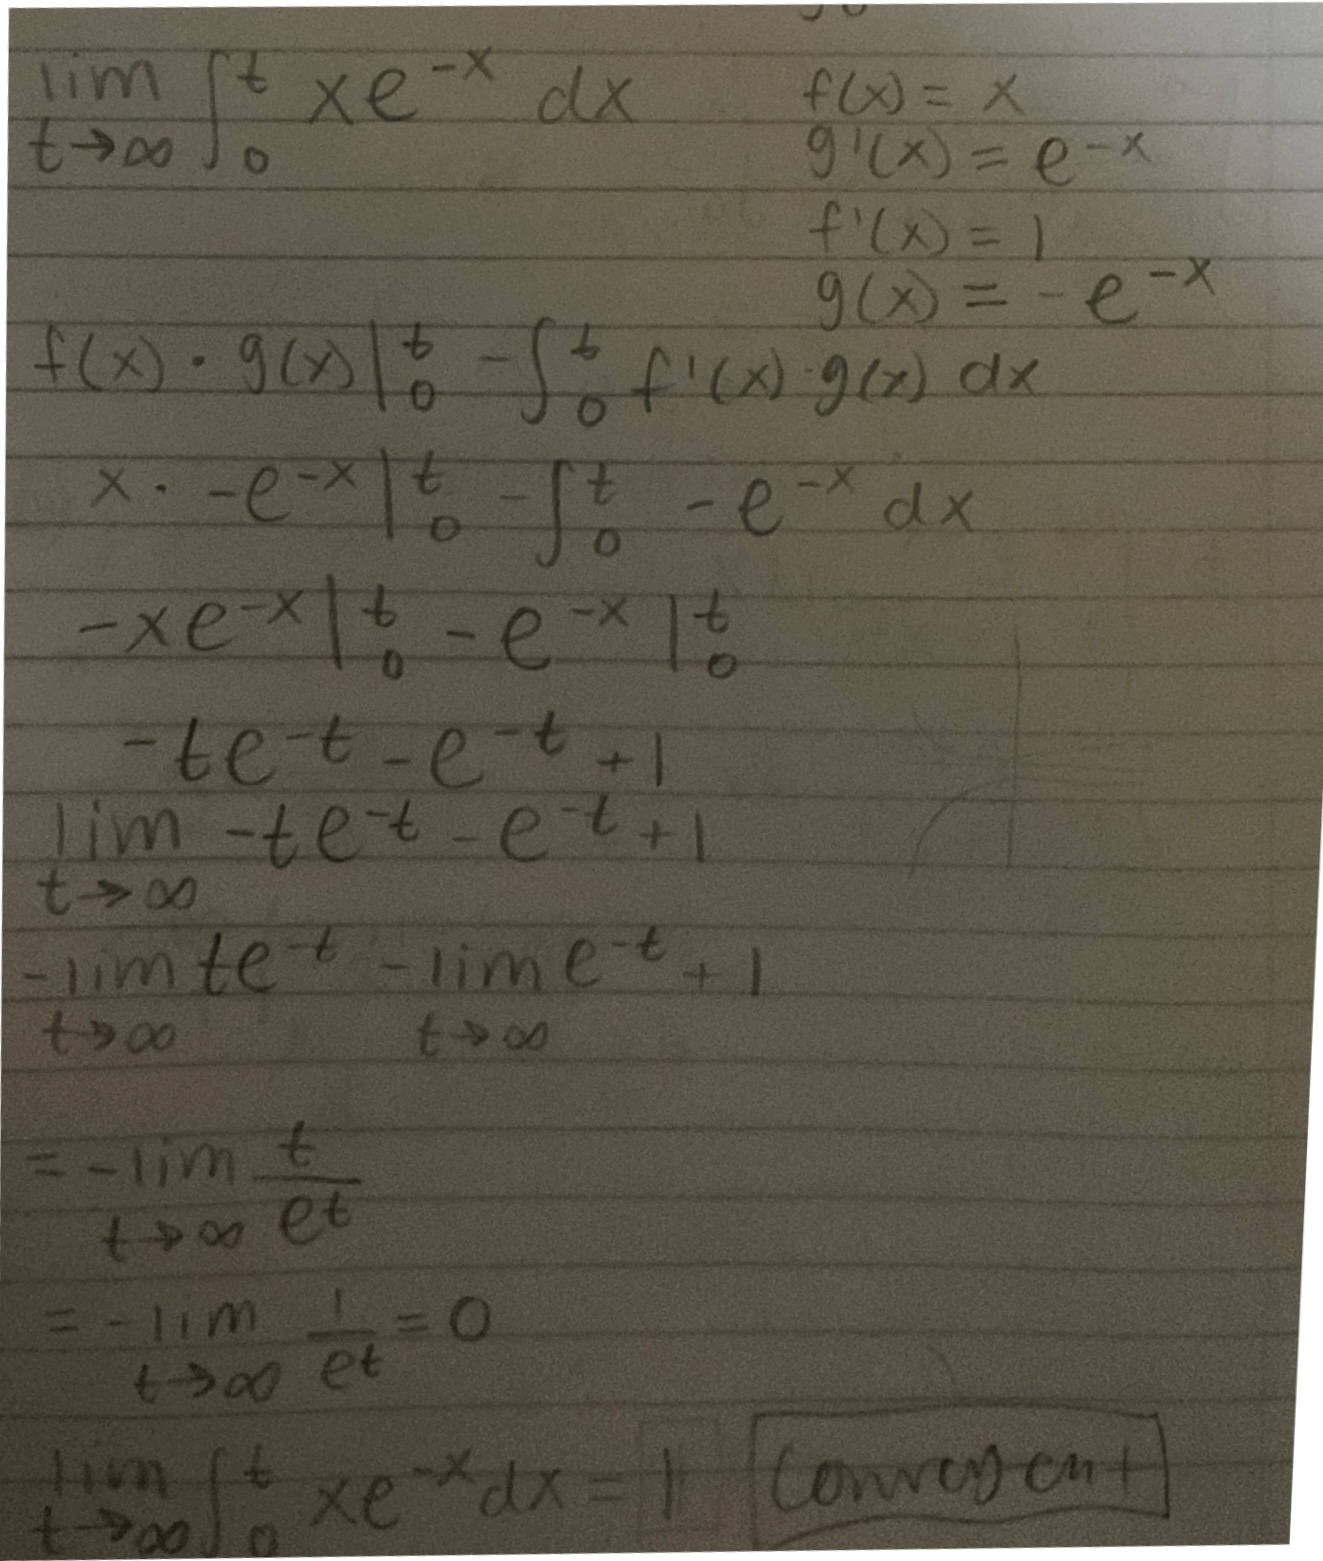 lim t→∞ ∫₀ᵗ xe⁻ˣ dx
f(x) = x
g'(x) = e⁻ˣ
f'(x) = 1
g(x) = -e⁻ˣ
f(x) · g(x)|₀ᵗ - ∫₀ᵗ f'(x) · g(x) dx
x · -e⁻ˣ|₀ᵗ - ∫₀ᵗ -e⁻ˣ dx
-xe⁻ˣ|₀ᵗ - e⁻ˣ|₀ᵗ
-te⁻ᵗ - e⁻ᵗ + 1
lim t→∞ -te⁻ᵗ - e⁻ᵗ + 1
-lim t→∞ te⁻ᵗ - lim t→∞ e⁻ᵗ + 1
= -lim t→∞ t/eᵗ
= -lim t→∞ 1/eᵗ = 0
lim t→∞ ∫₀ᵗ xe⁻ˣdx = 1 Convergent